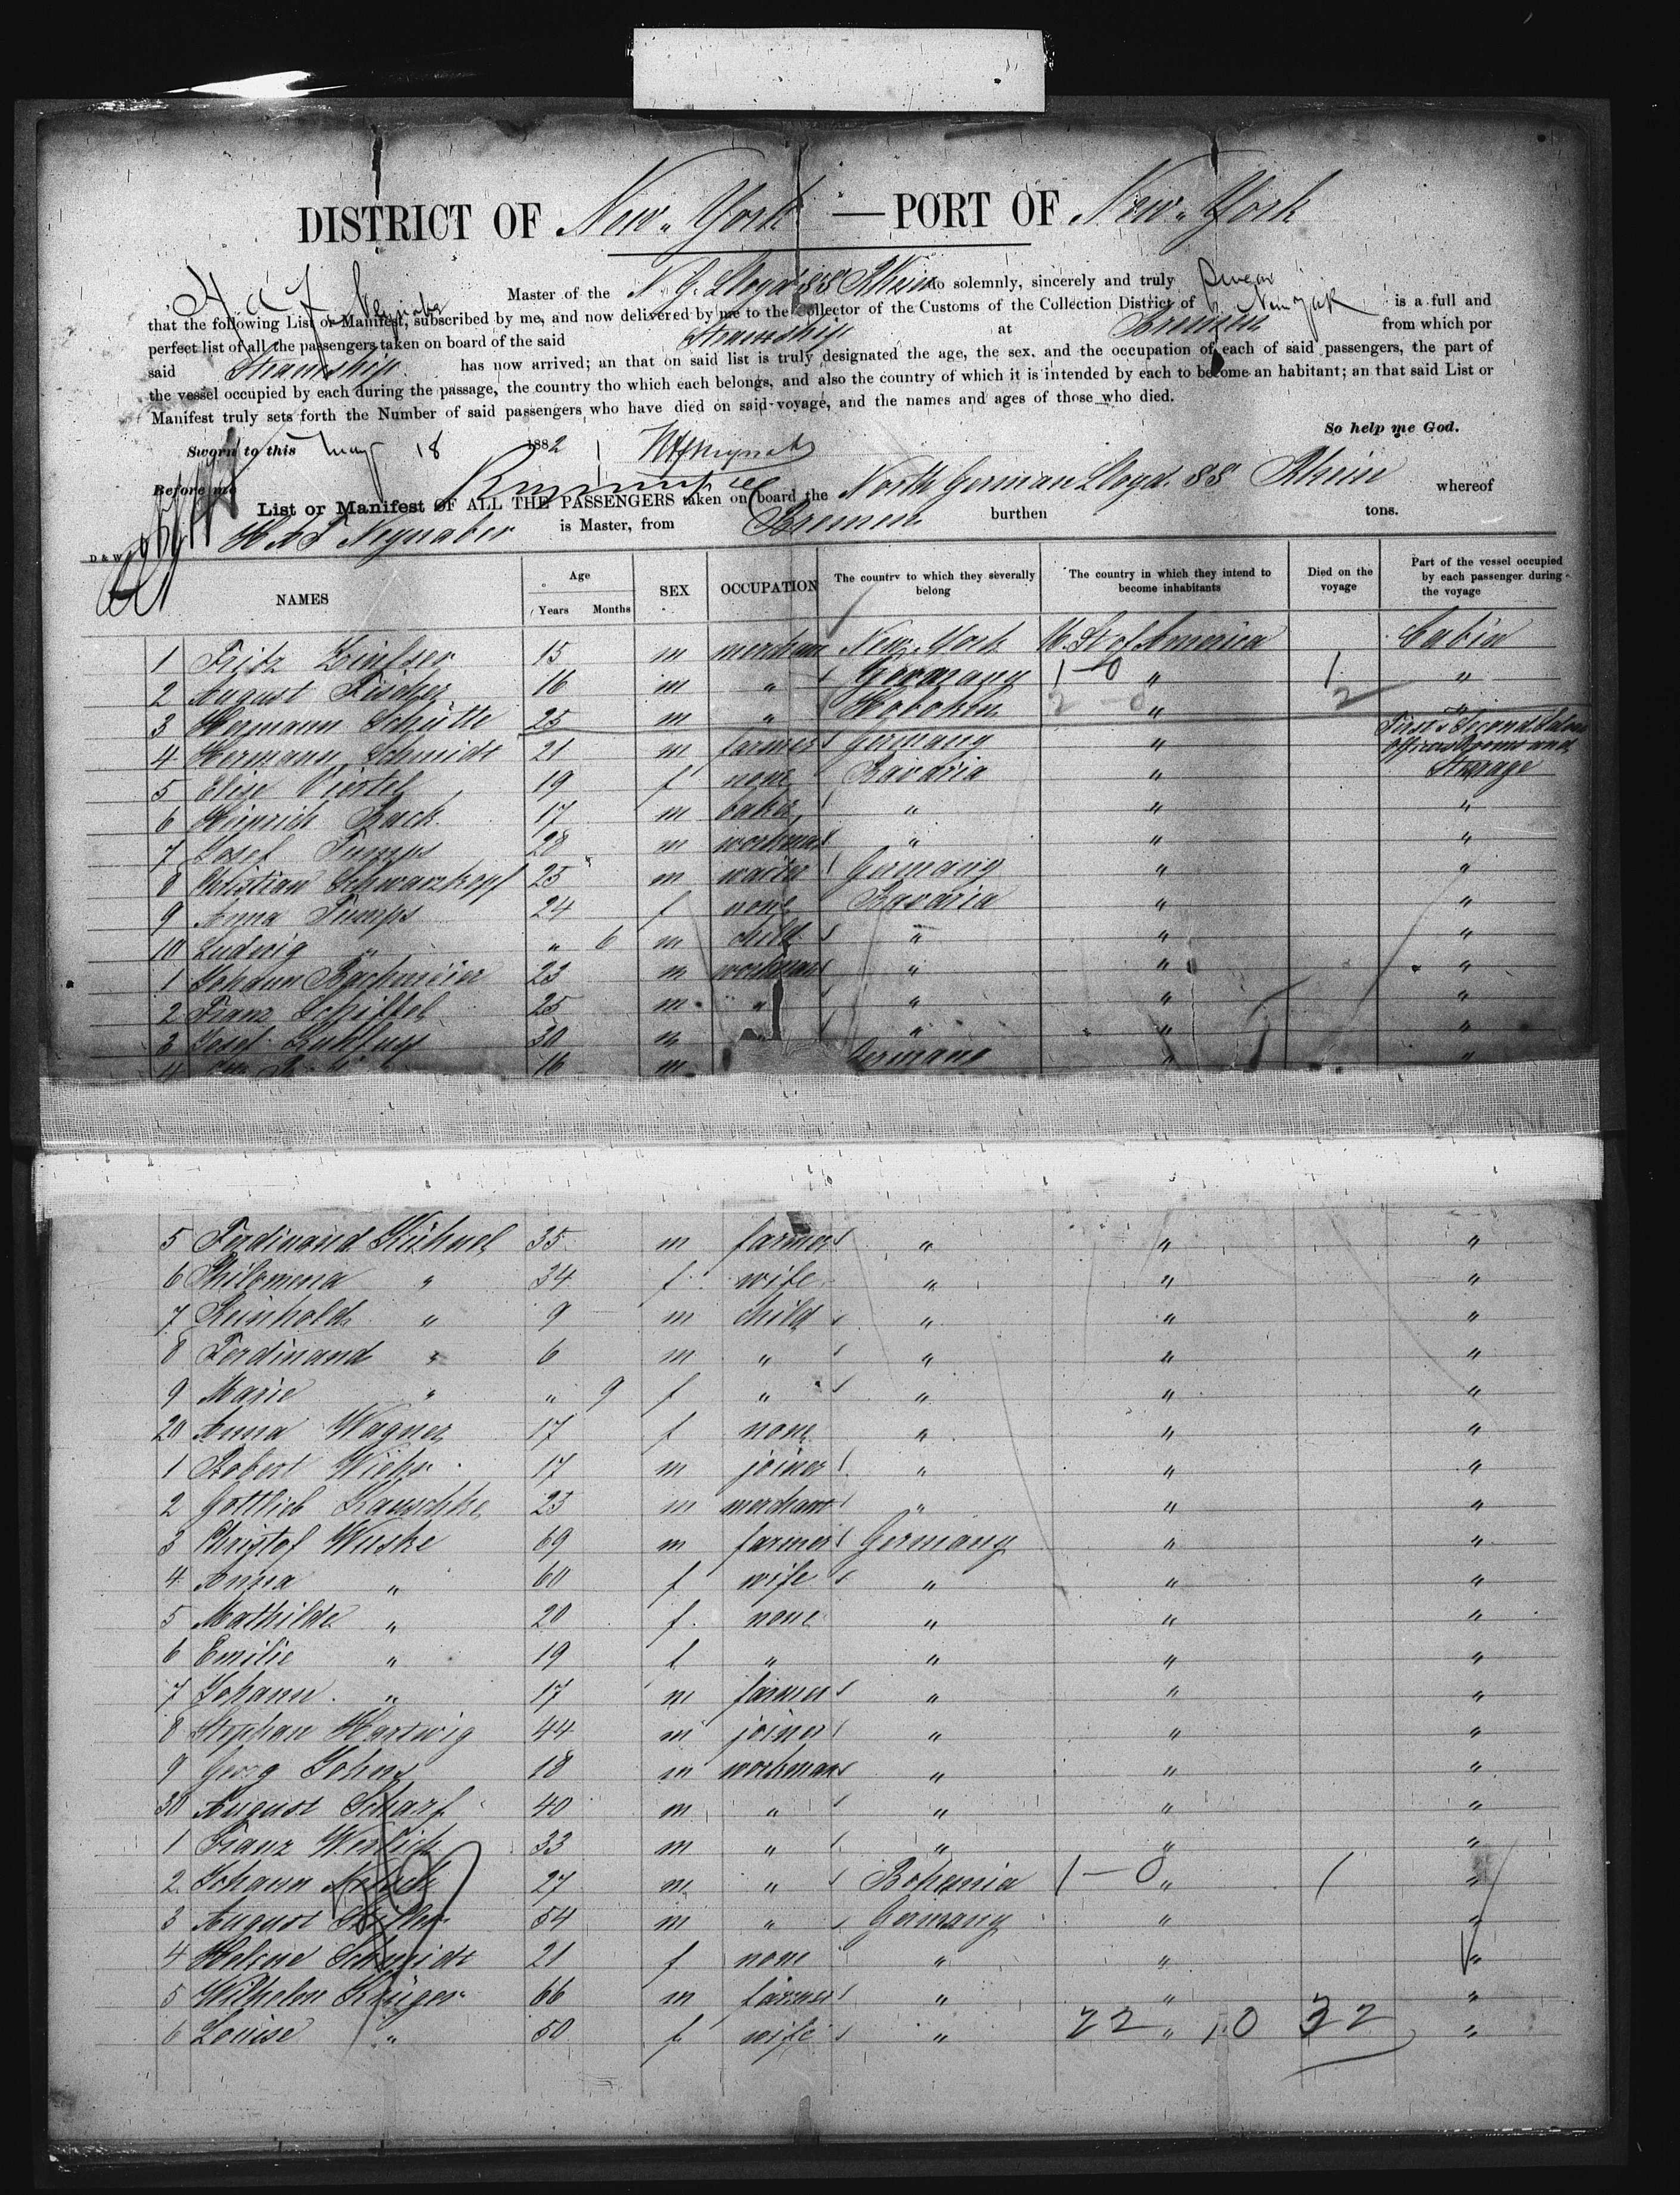 DISTRICT OF New York — PORT OF New York
H A F Neynaber Master of the N. G. Lloyd SS Rhein do solemnly, sincerely and truly swear
that the following List or Manifest, subscribed by me, and now delivered by me to the Collector of the Customs of the Collection District of New York is a full and
perfect list of all the passengers taken on board of the said Steamship at Bremen from which por
said Steamship has now arrived; an that on said list is truly designated the age, the sex, and the occupation of each of said passengers, the part of
the vessel occupied by each during the passage, the country tho which each belongs, and also the country of which it is intended by each to become an habitant; an that said List or
Manifest truly sets forth the Number of said passengers who have died on said voyage, and the names and ages of those who died.
So help me God.
Sworn to this May 18 1882
Before me
List or Manifest OF ALL THE PASSENGERS taken on board the North German Lloyd SS Rhein whereof
H A F Neynaber is Master, from Bremen burthen tons.
D & W
NAMES Age Years Months SEX OCCUPATION The country to which they severally belong The country in which they intend to become inhabitants Died on the voyage Part of the vessel occupied by each passenger during the voyage
1 Fritz 15 m merchant New York U. St of America Cabin
2 August Fischer 16 m " Germany 1-0 " 1 "
3 Hermann Schütte 25 m " Hoboken 2-0 " 2 "
4 Hermann Schmidt 21 m farmer Germany " First & Second Saloon Officers Rooms and
5 Elise Viertel 19 f none Bavaria " Steerage
6 Heinrich Back 17 m baker " " "
7 Josef Pumps 28 m workman " " "
8 Christian Schwarzkopf 25 m waiter Germany " "
9 Anna Pumps 24 f none Bavaria " "
10 Ludwig " " 6 m child " " "
1 Johann Bachmeier 23 m workman " " "
2 Franz Schiffel 25 m " " " "
3 Josef 30 m " " "
4 16 m Germany " "
5 Ferdinand Kühnel 35 m farmer " " "
6 Philomena " 34 f wife " " "
7 Reinhold " 9 m child " " "
8 Ferdinand " 6 m " " " "
9 Marie " " 9 f " " " "
20 Anna Wagner 17 f none " " "
1 Robert Wiehr 17 m joiner " " "
2 Gottlieb Kauschke 23 m merchant " " "
3 Christof Wuske 69 m farmer Germany " "
4 Anna " 60 f wife " " "
5 Mathilde " 20 f none " " "
6 Emilie " 19 f " " " "
7 Johann " 17 m farmer " " "
8 Stephan Hartwig 44 m joiner " " "
9 Georg Johns 18 m workman " " "
30 August Scharf 40 m " " " "
1 Franz Werlich 33 m " " " "
2 Johann 27 m " Bohemia 1-0 " 1 "
3 August 54 m " Germany " "
4 Helene Schmidt 21 f none " " "
5 Wilhelm Krüger 66 m farmer " " "
6 Louise " 50 f wife " 22 " 10 32 "